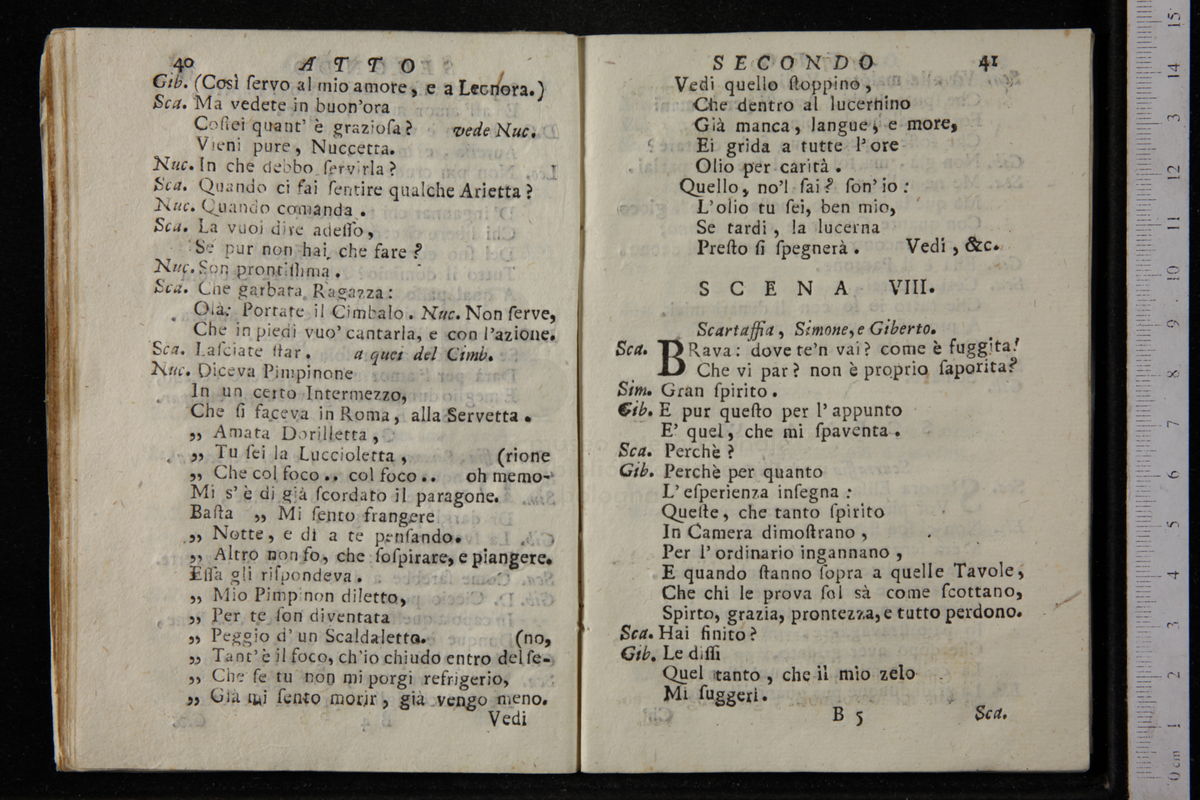 40 ATTO
Gib. (Così ſervo al mio amore, e a Leonora.)
Sca. Ma vedete in buon'ora
Coſtei quant' è grazioſa? vede Nuc.
Vieni pure, Nuccetta.
Nuc. In che debbo ſervirla?
Sca. Quando ci fai ſentire qualche Arietta?
Nuc. Quando comanda.
Sca. La vuoi dire adeſſo,
Se pur non hai che fare?
Nuc. Son prontiſſima.
Sca. Che garbata Ragazza:
Olà: Portate il Cimbalo. Nuc. Non ſerve,
Che in piedi vuo' cantarla, e con l'azione.
Sca. Laſciate ſtar. a quei del Cimb.
Nuc. Diceva Pimpinone
In un certo Intermezzo,
Che ſi faceva in Roma, alla Servetta.
„ Amata Dorilletta,
„ Tu ſei la Luccioletta, (rione
„ Che col foco.. col foco.. oh memo-
Mi s'è di già ſcordato il paragone.
Baſta „ Mi ſento frangere
„ Notte, e dì a te penſando.
„ Altro non fo, che ſoſpirare, e piangere.
Eſſa gli riſpondeva.
„ Mio Pimpinon diletto,
„ Per te ſon diventata
„ Peggio d'un Scaldaletto. (no,
„ Tant'è il foco, ch'io chiudo entro del ſe-
„ Che ſe tu non mi porgi refrigerio,
„ Già mi ſento morir, già vengo meno.
Vedi
SECONDO 41
Vedi quello ſtoppino,
Che dentro al lucernino
Già manca, langue, e more,
Ei grida a tutte l'ore
Olio per carità.
Quello, no'l ſai? ſon' io:
L'olio tu ſei, ben mio,
Se tardi, la lucerna
Preſto ſi ſpegnerà. Vedi, &c.
SCENA VIII.
Scartaffia, Simone, e Giberto.
Sca. BRava: dove te'n vai? come è fuggita!
Che vi par? non è proprio ſaporita?
Sim. Gran ſpirito.
Gib. E pur queſto per l'appunto
E' quel, che mi ſpaventa.
Sca. Perchè?
Gib. Perchè per quanto
L'eſperienza inſegna:
Queſte, che tanto ſpirito
In Camera dimoſtrano,
Per l'ordinario ingannano,
E quando ſtanno ſopra a quelle Tavole,
Che chi le prova ſol sà come ſcottano,
Spirto, grazia, prontezza, e tutto perdono.
Sca. Hai finito?
Gib. Le diſſi
Quel tanto, che il mio zelo
Mi ſuggerì.
B 5 Sca.
15
14
13
12
11
10
9
8
7
6
5
4
3
2
1
0 cm